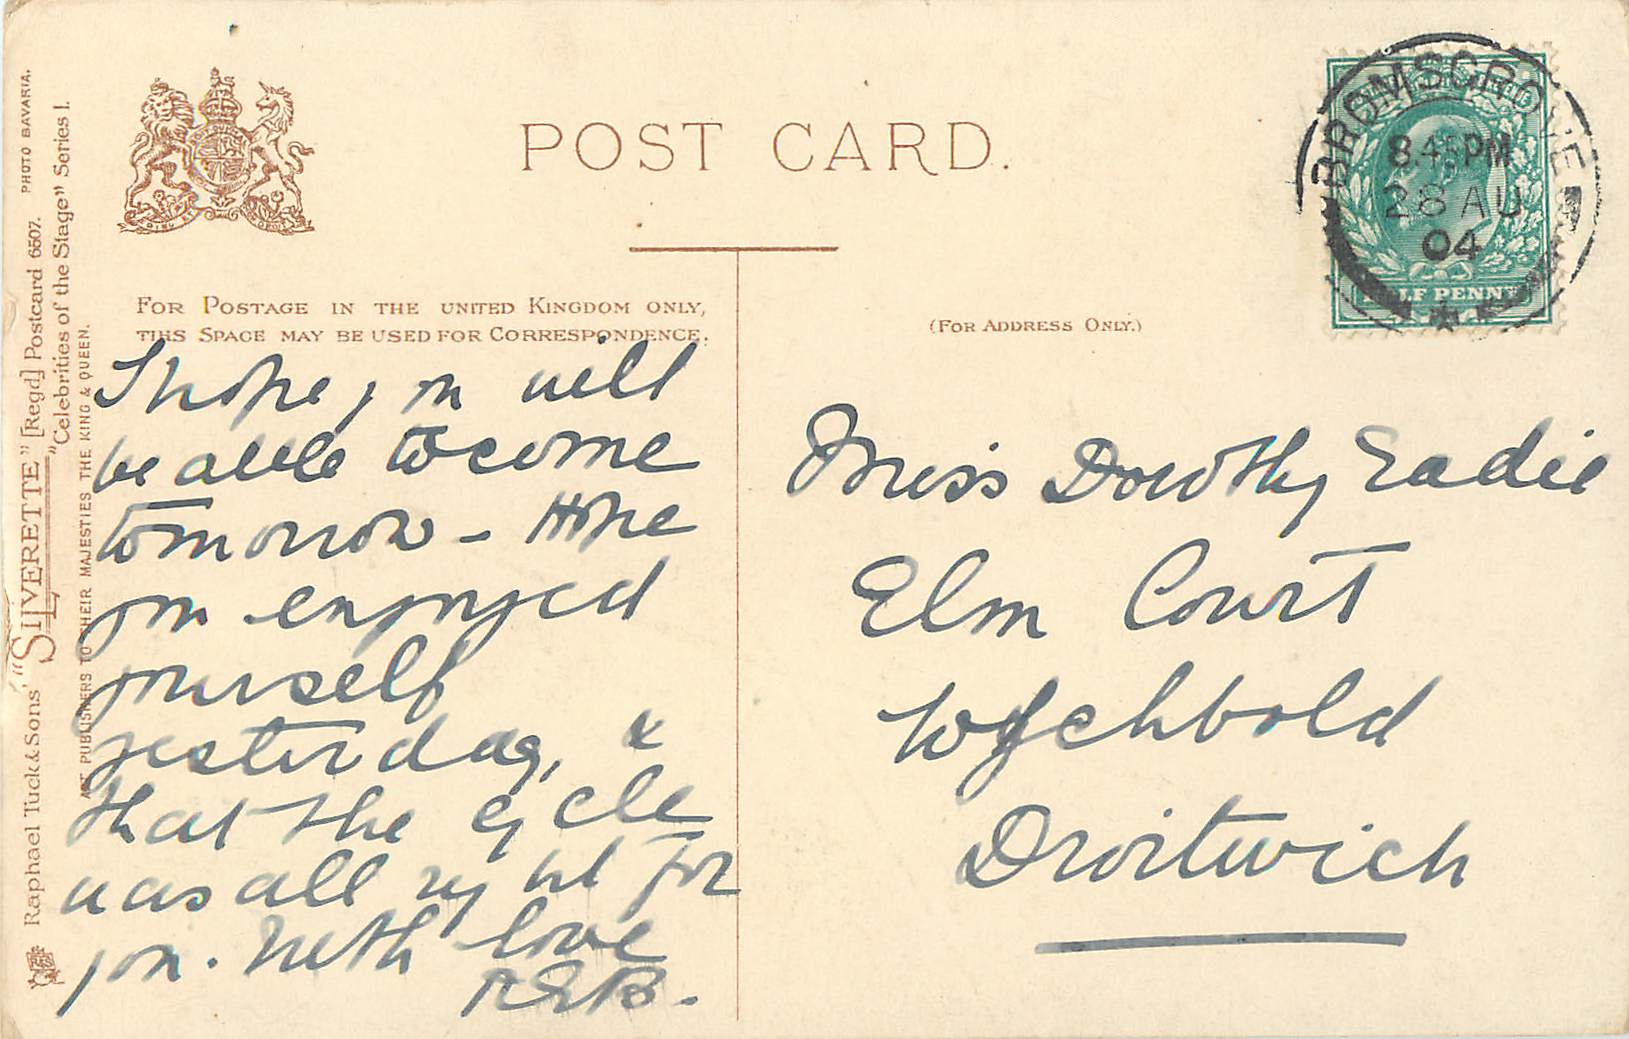 POST CARD.
FOR POSTAGE IN THE UNITED KINGDOM ONLY,
THIS SPACE MAY BE USED FOR CORRESPONDENCE.
(FOR ADDRESS ONLY.)
I hope you will
be able to come
tomorrow - Hope
you enjoyed
yourself
yesterday, &
that the cycle
was all right for
you. With love
Miss Dorothy Eadie
Elm Court
Wychbold
Droitwich
BROMSGROVE
8.45PM
28 AU
04
HALF PENNY
Raphael Tuck & Sons' "SILVERETTE" [Regd] Postcard 6507. PHOTO BAVARIA.
"Celebrities of the Stage" Series I.
ART PUBLISHERS TO THEIR MAJESTIES THE KING & QUEEN.